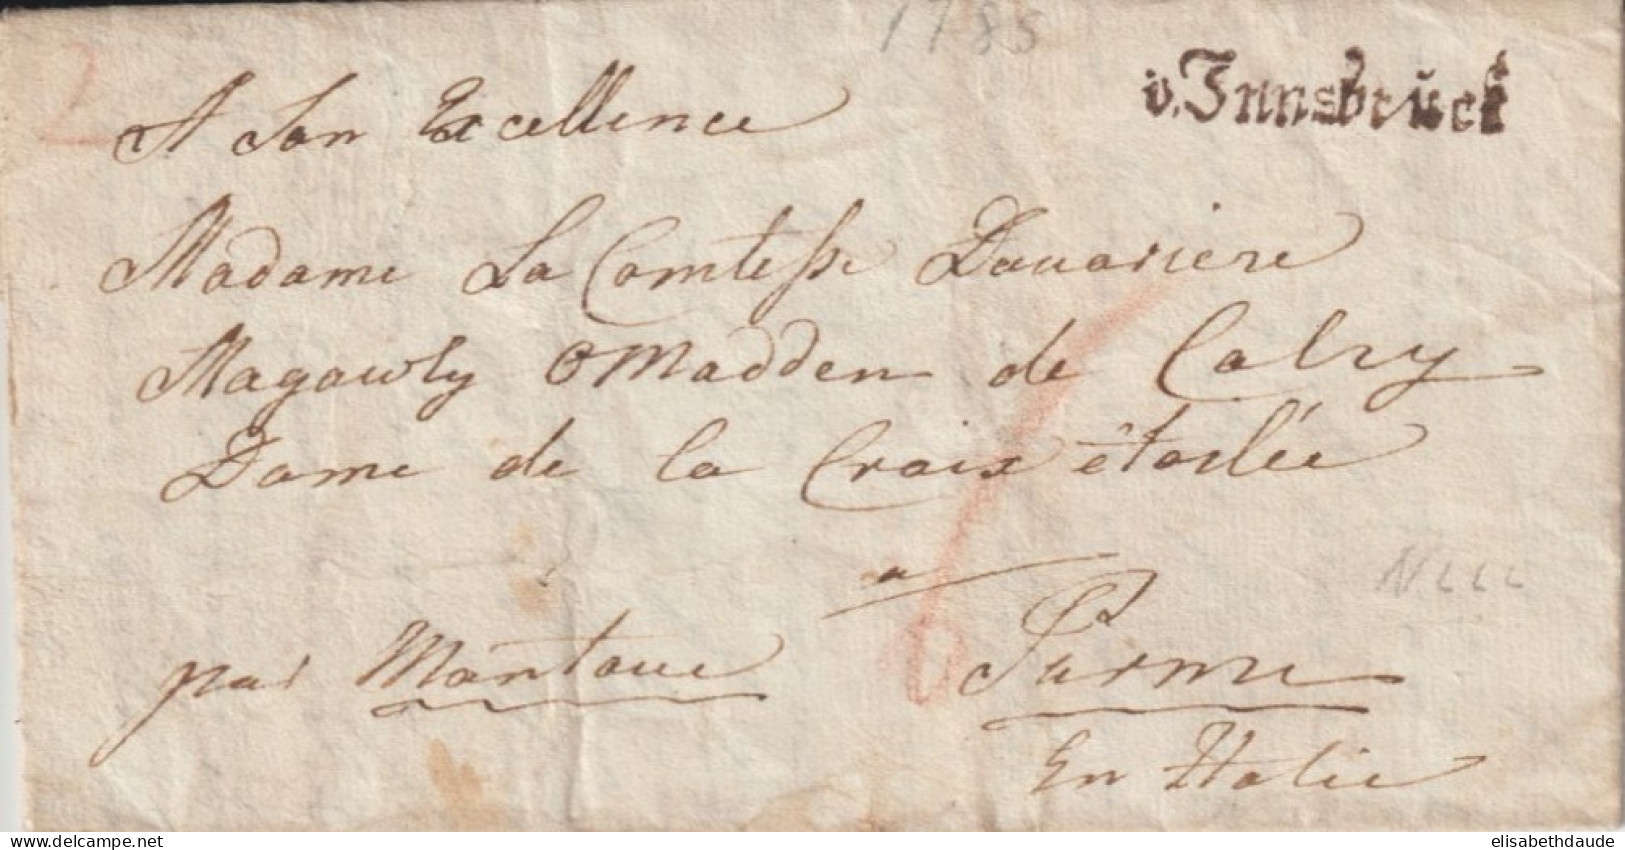 1785
v. Innsbruck
2
A Son Excellence
Madame La Comtesse Douariere
Magawly OMadden de Calry
Dame de la Croix êtoilée
a
par Mantoue Parme
En Italie
delcampe.net
elisabethdaude